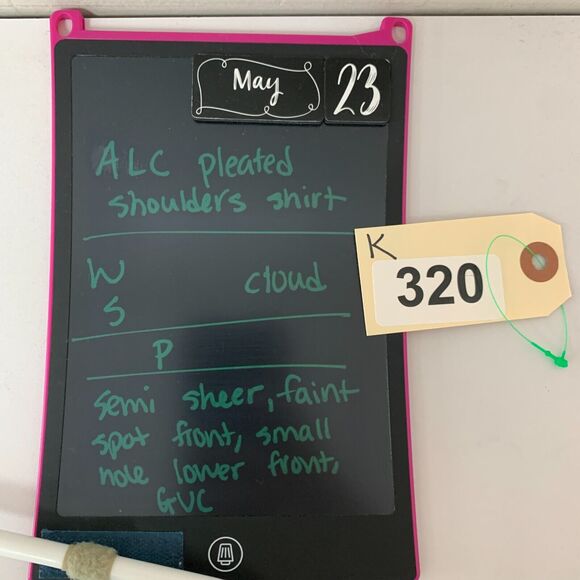 May 23
ALC pleated
shoulders shirt
K
320
W cloud
S
P
semi sheer, faint
spot front, small
hole lower front,
GUC